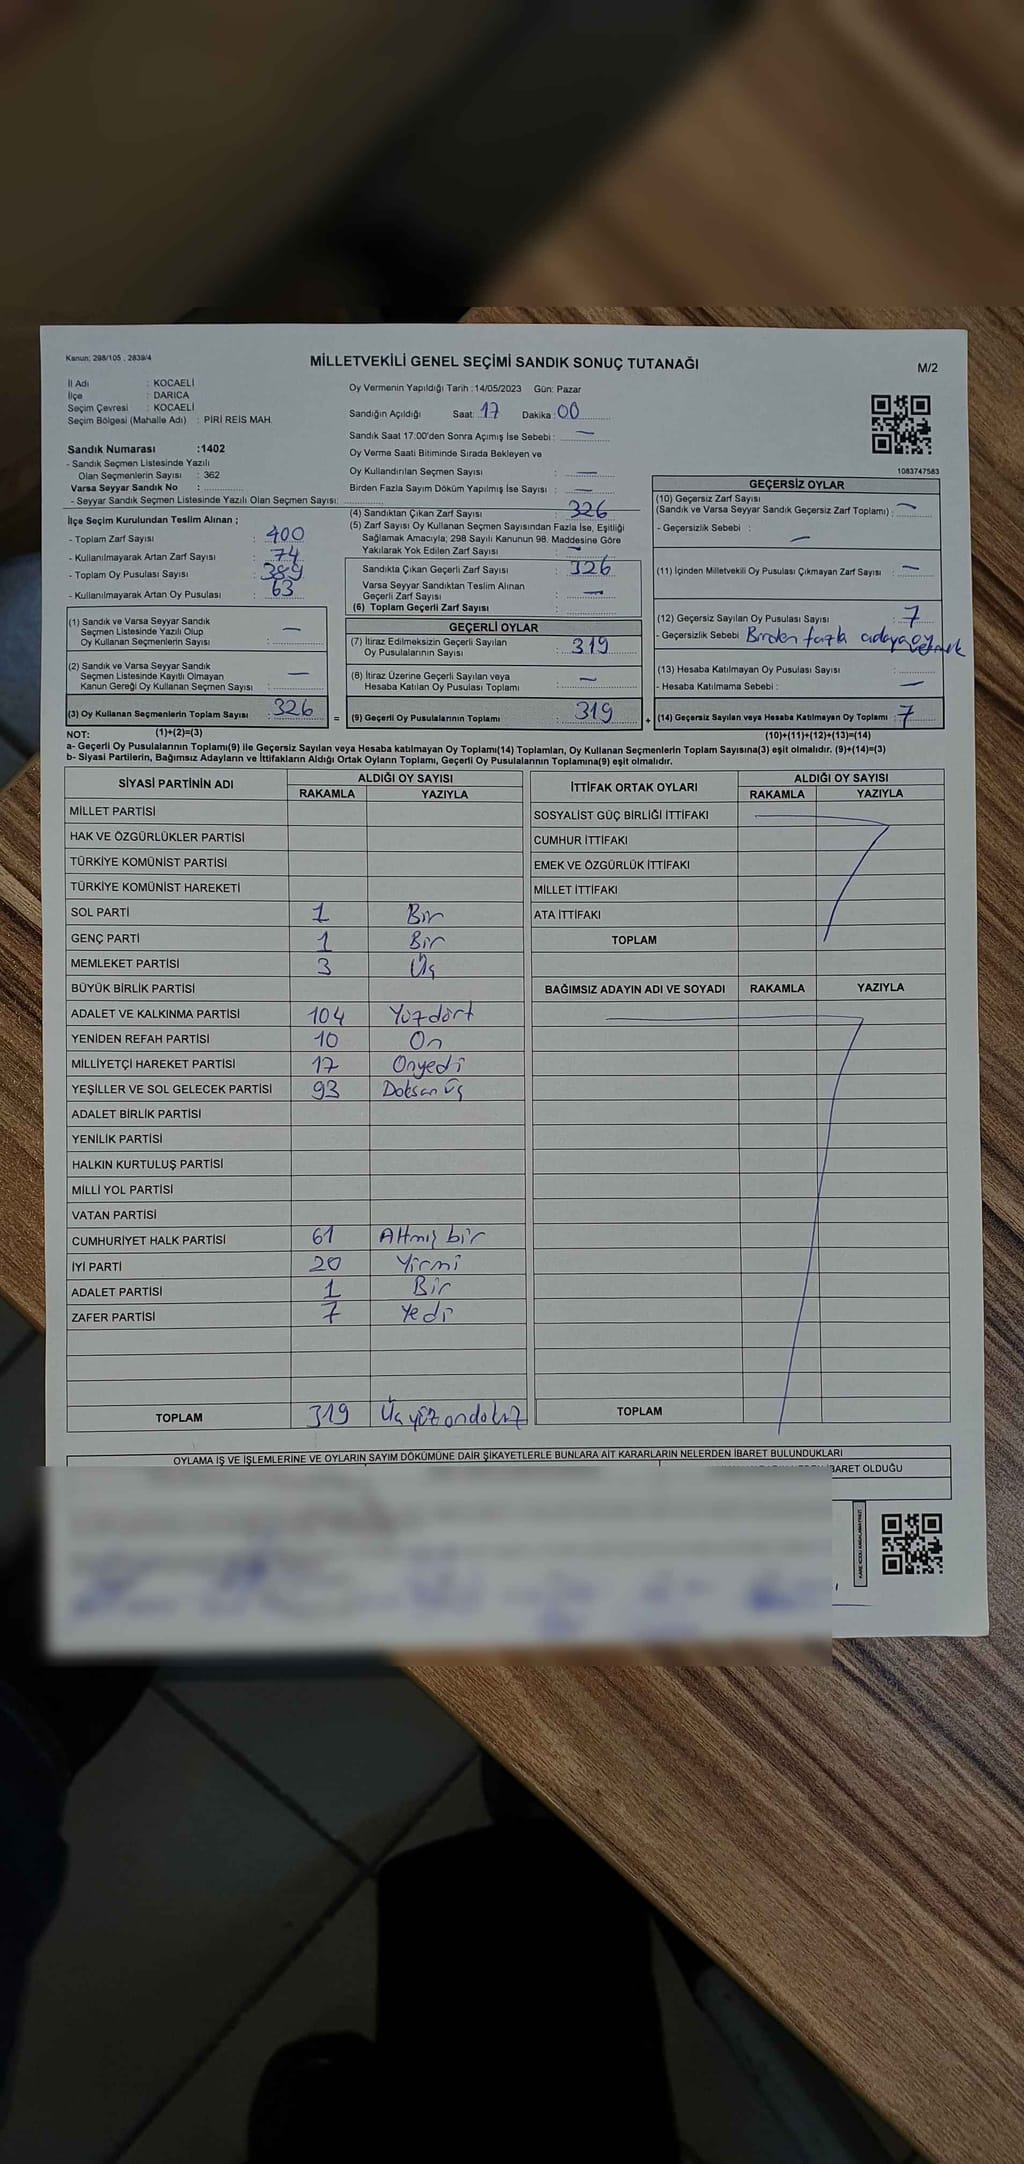 Kanun: 298/105 , 2839/4
MİLLETVEKİLİ GENEL SEÇİMİ SANDIK SONUÇ TUTANAĞI
M/2
İl Adı : KOCAELİ
İlçe : DARICA
Seçim Çevresi : KOCAELİ
Seçim Bölgesi (Mahalle Adı) : PİRİ REİS MAH.
Sandık Numarası :1402
- Sandık Seçmen Listesinde Yazılı
Olan Seçmenlerin Sayısı : 362
Varsa Seyyar Sandık No :
- Seyyar Sandık Seçmen Listesinde Yazılı Olan Seçmen Sayısı:
Oy Vermenin Yapıldığı Tarih :14/05/2023 Gün: Pazar
Sandığın Açıldığı Saat: 17 Dakika: 00
Sandık Saat 17:00'den Sonra Açımış İse Sebebi : —
Oy Verme Saati Bitiminde Sırada Bekleyen ve
Oy Kullandırılan Seçmen Sayısı : —
Birden Fazla Sayım Döküm Yapılmış İse Sayısı : —
1083747583
İlçe Seçim Kurulundan Teslim Alınan ;
- Toplam Zarf Sayısı : 400
- Kullanılmayarak Artan Zarf Sayısı : 74
- Toplam Oy Pusulası Sayısı : 389
- Kullanılmayarak Artan Oy Pusulası : 63
(1) Sandık ve Varsa Seyyar Sandık
Seçmen Listesinde Yazılı Olup
Oy Kullanan Seçmenlerin Sayısı : —
(2) Sandık ve Varsa Seyyar Sandık
Seçmen Listesinde Kayıtlı Olmayan
Kanun Gereği Oy Kullanan Seçmen Sayısı : —
(3) Oy Kullanan Seçmenlerin Toplam Sayısı : 326
(1)+(2)=(3)
(4) Sandıktan Çıkan Zarf Sayısı : 326
(5) Zarf Sayısı Oy Kullanan Seçmen Sayısından Fazla İse, Eşitliği
Sağlamak Amacıyla; 298 Sayılı Kanunun 98. Maddesine Göre
Yakılarak Yok Edilen Zarf Sayısı : —
Sandıkta Çıkan Geçerli Zarf Sayısı : 326
Varsa Seyyar Sandıktan Teslim Alınan
Geçerli Zarf Sayısı : —
(6) Toplam Geçerli Zarf Sayısı :
GEÇERLİ OYLAR
(7) İtiraz Edilmeksizin Geçerli Sayılan
Oy Pusulalarının Sayısı : 319
(8) İtiraz Üzerine Geçerli Sayılan veya
Hesaba Katılan Oy Pusulası Toplamı : —
= (9) Geçerli Oy Pusulalarının Toplamı : 319
GEÇERSİZ OYLAR
(10) Geçersiz Zarf Sayısı
(Sandık ve Varsa Seyyar Sandık Geçersiz Zarf Toplamı) : —
- Geçersizlik Sebebi : —
(11) İçinden Milletvekili Oy Pusulası Çıkmayan Zarf Sayısı : —
(12) Geçersiz Sayılan Oy Pusulası Sayısı : 7
- Geçersizlik Sebebi Birden fazla adaya oy vermek
(13) Hesaba Katılmayan Oy Pusulası Sayısı :
- Hesaba Katılmama Sebebi : —
+ (14) Geçersiz Sayılan veya Hesaba Katılmayan Oy Toplamı : 7
(10)+(11)+(12)+(13)=(14)
NOT:
a- Geçerli Oy Pusulalarının Toplamı(9) ile Geçersiz Sayılan veya Hesaba katılmayan Oy Toplamı(14) Toplamları, Oy Kullanan Seçmenlerin Toplam Sayısına(3) eşit olmalıdır. (9)+(14)=(3)
b- Siyasi Partilerin, Bağımsız Adayların ve İttifakların Aldığı Ortak Oyların Toplamı, Geçerli Oy Pusulalarının Toplamına(9) eşit olmalıdır.
SİYASİ PARTİNİN ADI ALDIĞI OY SAYISI
RAKAMLA YAZIYLA
MİLLET PARTİSİ
HAK VE ÖZGÜRLÜKLER PARTİSİ
TÜRKİYE KOMÜNİST PARTİSİ
TÜRKİYE KOMÜNİST HAREKETİ
SOL PARTİ 1 Bir
GENÇ PARTİ 1 Bir
MEMLEKET PARTİSİ 3 Üç
BÜYÜK BİRLİK PARTİSİ
ADALET VE KALKINMA PARTİSİ 104 Yüzdört
YENİDEN REFAH PARTİSİ 10 On
MİLLİYETÇİ HAREKET PARTİSİ 17 Onyedi
YEŞİLLER VE SOL GELECEK PARTİSİ 93 Doksan üç
ADALET BİRLİK PARTİSİ
YENİLİK PARTİSİ
HALKIN KURTULUŞ PARTİSİ
MİLLİ YOL PARTİSİ
VATAN PARTİSİ
CUMHURİYET HALK PARTİSİ 61 Altmış bir
İYİ PARTİ 20 Yirmi
ADALET PARTİSİ 1 Bir
ZAFER PARTİSİ 7 Yedi
TOPLAM 319 Üçyüzondokuz
İTTİFAK ORTAK OYLARI ALDIĞI OY SAYISI
RAKAMLA YAZIYLA
SOSYALİST GÜÇ BİRLİĞİ İTTİFAKI
CUMHUR İTTİFAKI
EMEK VE ÖZGÜRLÜK İTTİFAKI
MİLLET İTTİFAKI
ATA İTTİFAKI
TOPLAM
BAĞIMSIZ ADAYIN ADI VE SOYADI RAKAMLA YAZIYLA
TOPLAM
OYLAMA İŞ VE İŞLEMLERİNE VE OYLARIN SAYIM DÖKÜMÜNE DAİR ŞİKAYETLERLE BUNLARA AİT KARARLARIN NELERDEN İBARET BULUNDUKLARI
İBARET OLDUĞU